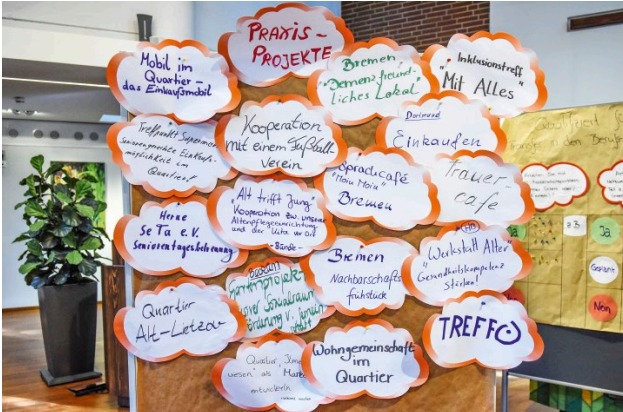 PRAXIS-
PROJEKTE
Mobil im
Quartier -
das Einkaufsmobil
Bremen
"Demenzfreund-
liches Lokal
"Inklusionstreff
"Mit Alles"
Treffpunkt Supermarkt
Seniorengerechte Einkaufs-
möglichkeit im
Quartier!
Kooperation
mit einem Fußball-
verein
Dortmund
Einkaufen
"Alt trifft Jung"
Kooperation zw. unserer
Altenpflegeeinrichtung
und der Kita vor Ort
- Bünde -
Sprachcafé
"Moin Moin"
Bremen
Trauer-
cafe
Herne
SeTa e.V.
Seniorentagesbetreuung
Bremen
Nachbarschafts-
frühstück
"Werkstatt Alter"
Gesundheitskompetenz
Stärken!
Quartier
Alt-Lietzow
Gartenprojekt-
Sozialraum
TREFF
Quartier
wesen" als
entwickeln
Wohngemeinschaft
im
Quartier
z.B.
Ja
Geplant
Nein